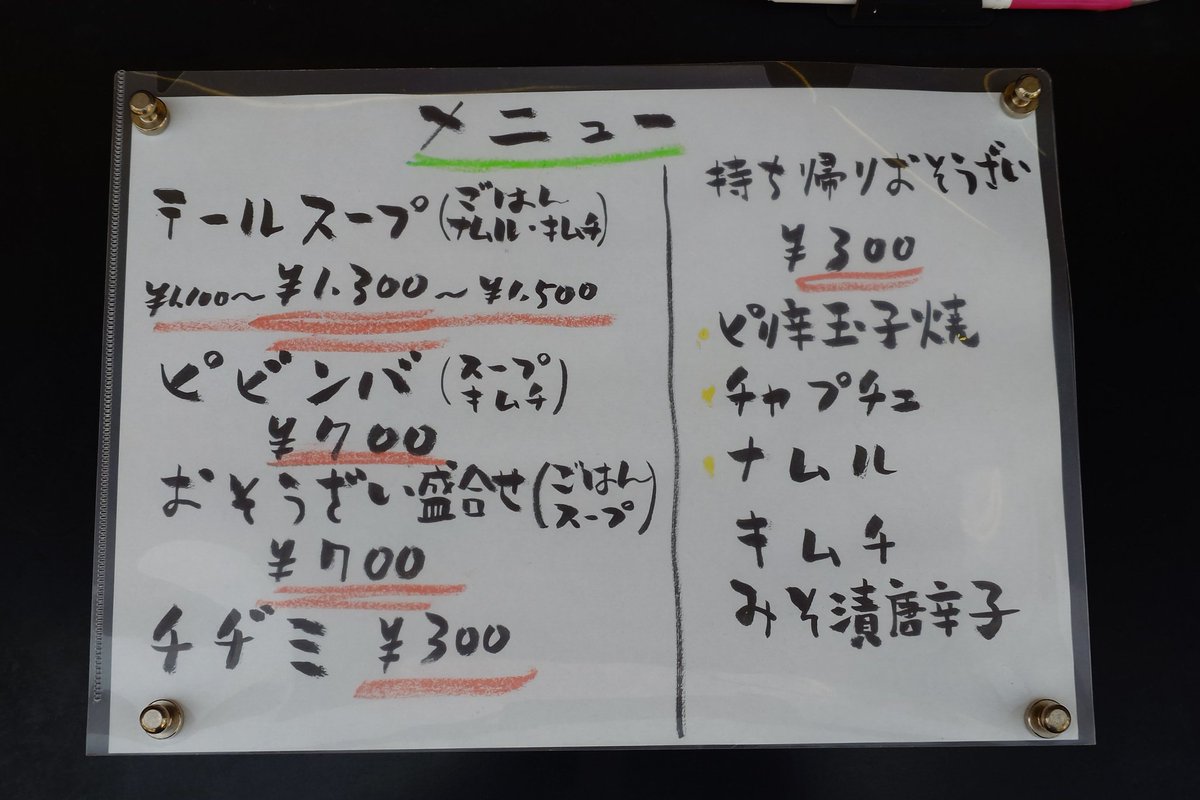 メニュー
テールスープ(ごはん
ナムル・キムチ)
¥1,100～¥1,300～¥1,500
ピビンバ(スープ
キムチ)
¥700
おそうざい盛合せ(ごはん
スープ)
¥700
チヂミ ¥300
持ち帰りおそうざい
¥300
・ピリ辛玉子焼
・チャプチェ
・ナムル
キムチ
みそ漬唐辛子